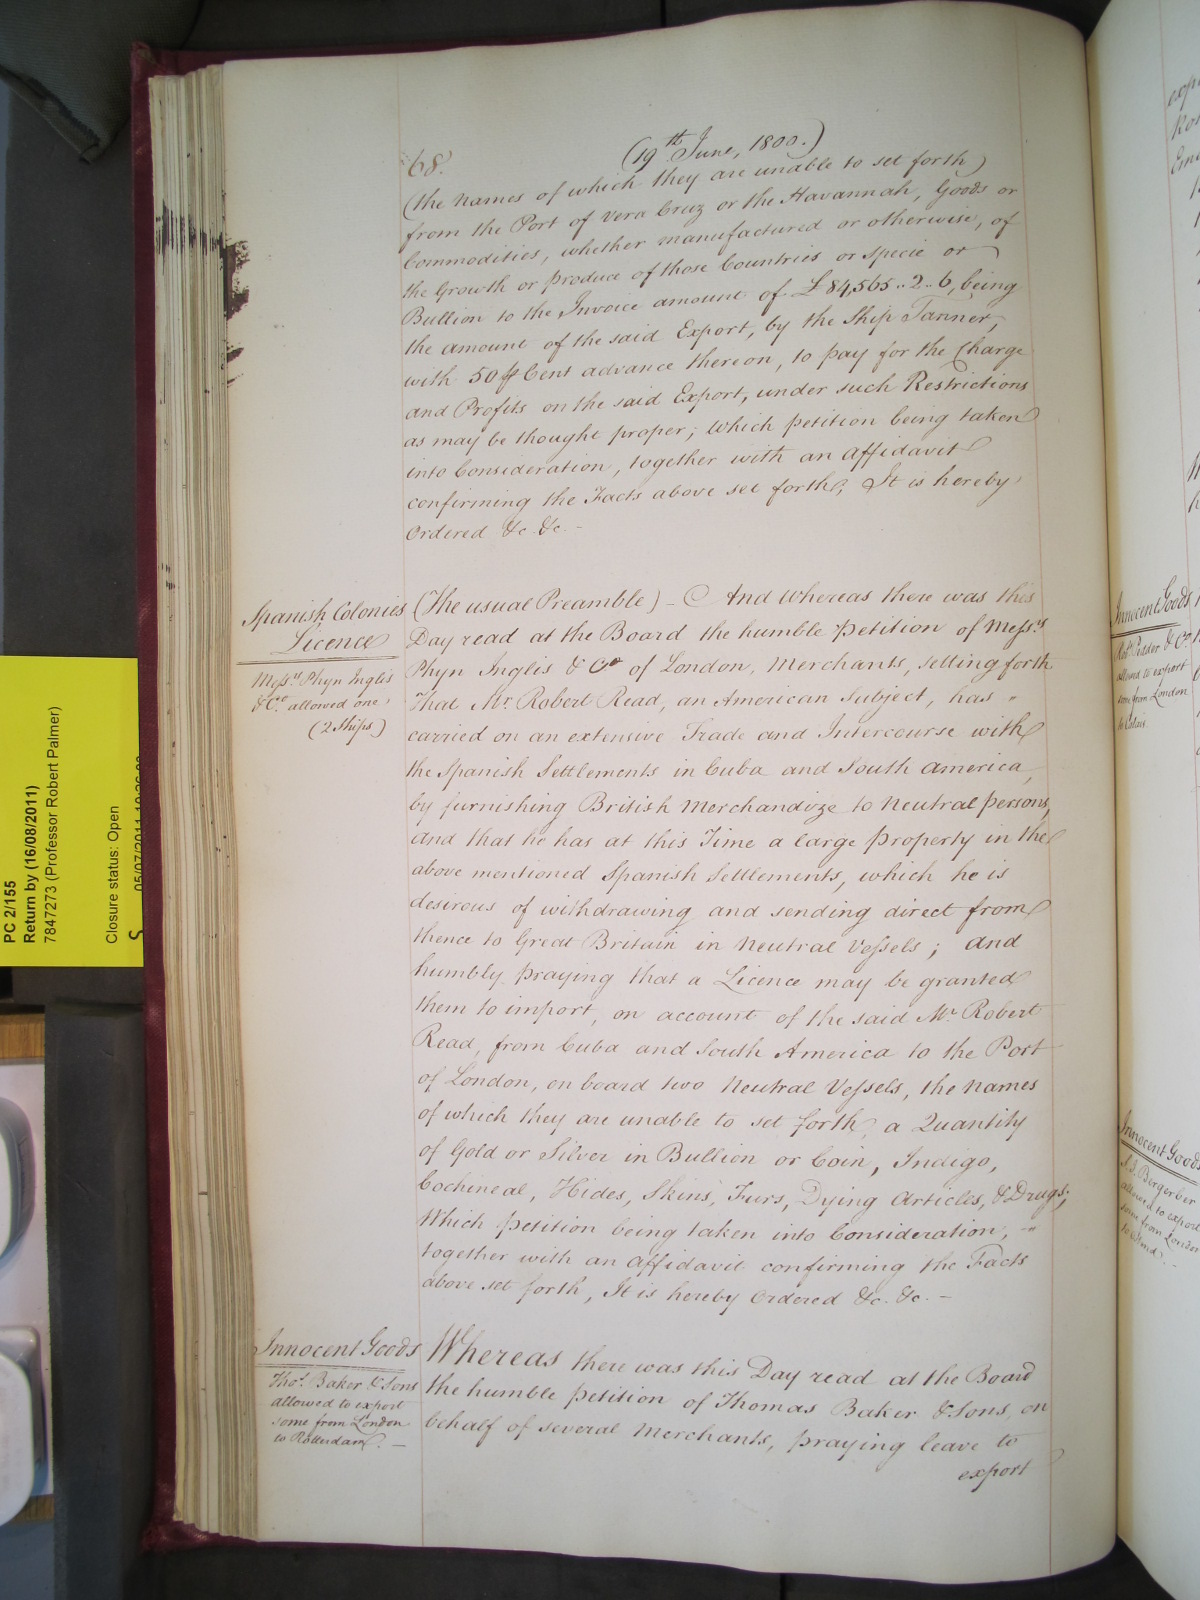 68.
(19th June, 1800.)
(the names of which they are unable to set forth)
from the Port of Vera Cruz or the Havannah, Goods or
Commodities, whether manufactured or otherwise, of
the Growth or produce of those Countries or specie or
Bullion to the Invoice amount of £84,565..2..6, being
the amount of the said Export, by the Ship Tanner,
with 50 ⅌ Cent advance thereon, to pay for the Charge
and Profits on the said Export, under such Restrictions
as may be thought proper; Which petition being taken
into Consideration, together with an affidavit
confirming the Facts above set forth, It is hereby
Ordered &c. &c. -
Spanish Colonies
Licence
Messrs Phyn Inglis
& Co. allowed one,
(2 Ships)
(The usual Preamble) - And Whereas there was this
Day read at the Board the humble Petition of Messrs
Phyn Inglis & Co of London, Merchants, setting forth
That Mr. Robert Read, an American Subject, has "
carried on an extensive Trade and Intercourse with
the Spanish Settlements in Cuba and South America,
by furnishing British Merchandize to Neutral persons,
and that he has at this Time a large property in the
above mentioned Spanish Settlements, which he is
desirous of withdrawing and sending direct from
thence to Great Britain in Neutral Vessels; and
humbly praying that a Licence may be granted
them to import, on account of the said Mr Robert
Read, from Cuba and South America to the Port
of London, on board two Neutral Vessels, the names
of which they are unable to set forth, a Quantity
of Gold or Silver in Bullion or Coin, Indigo,
Cochineal, Hides, Skins, Furs, Dying Articles, & Drugs;
Which petition being taken into Consideration, "
together with an affidavit confirming the Facts
above set forth, It is hereby Ordered &c. &c. -
Innocent Goods
Thos. Baker & Sons
allowed to export
some from London
to Rotterdam. -
Whereas there was this Day read at the Board
the humble petition of Thomas Baker & Sons, on
behalf of several Merchants, praying leave to
export
Innocent Goods
Robt Pedder & Co.
allowed to export
some from London
to Calais
Innocent Goods
Bergerber
allowed to export
some from London
PC 2/155
Return by (16/08/2011)
7847273 (Professor Robert Palmer)
Closure status: Open
05/07/2011
S